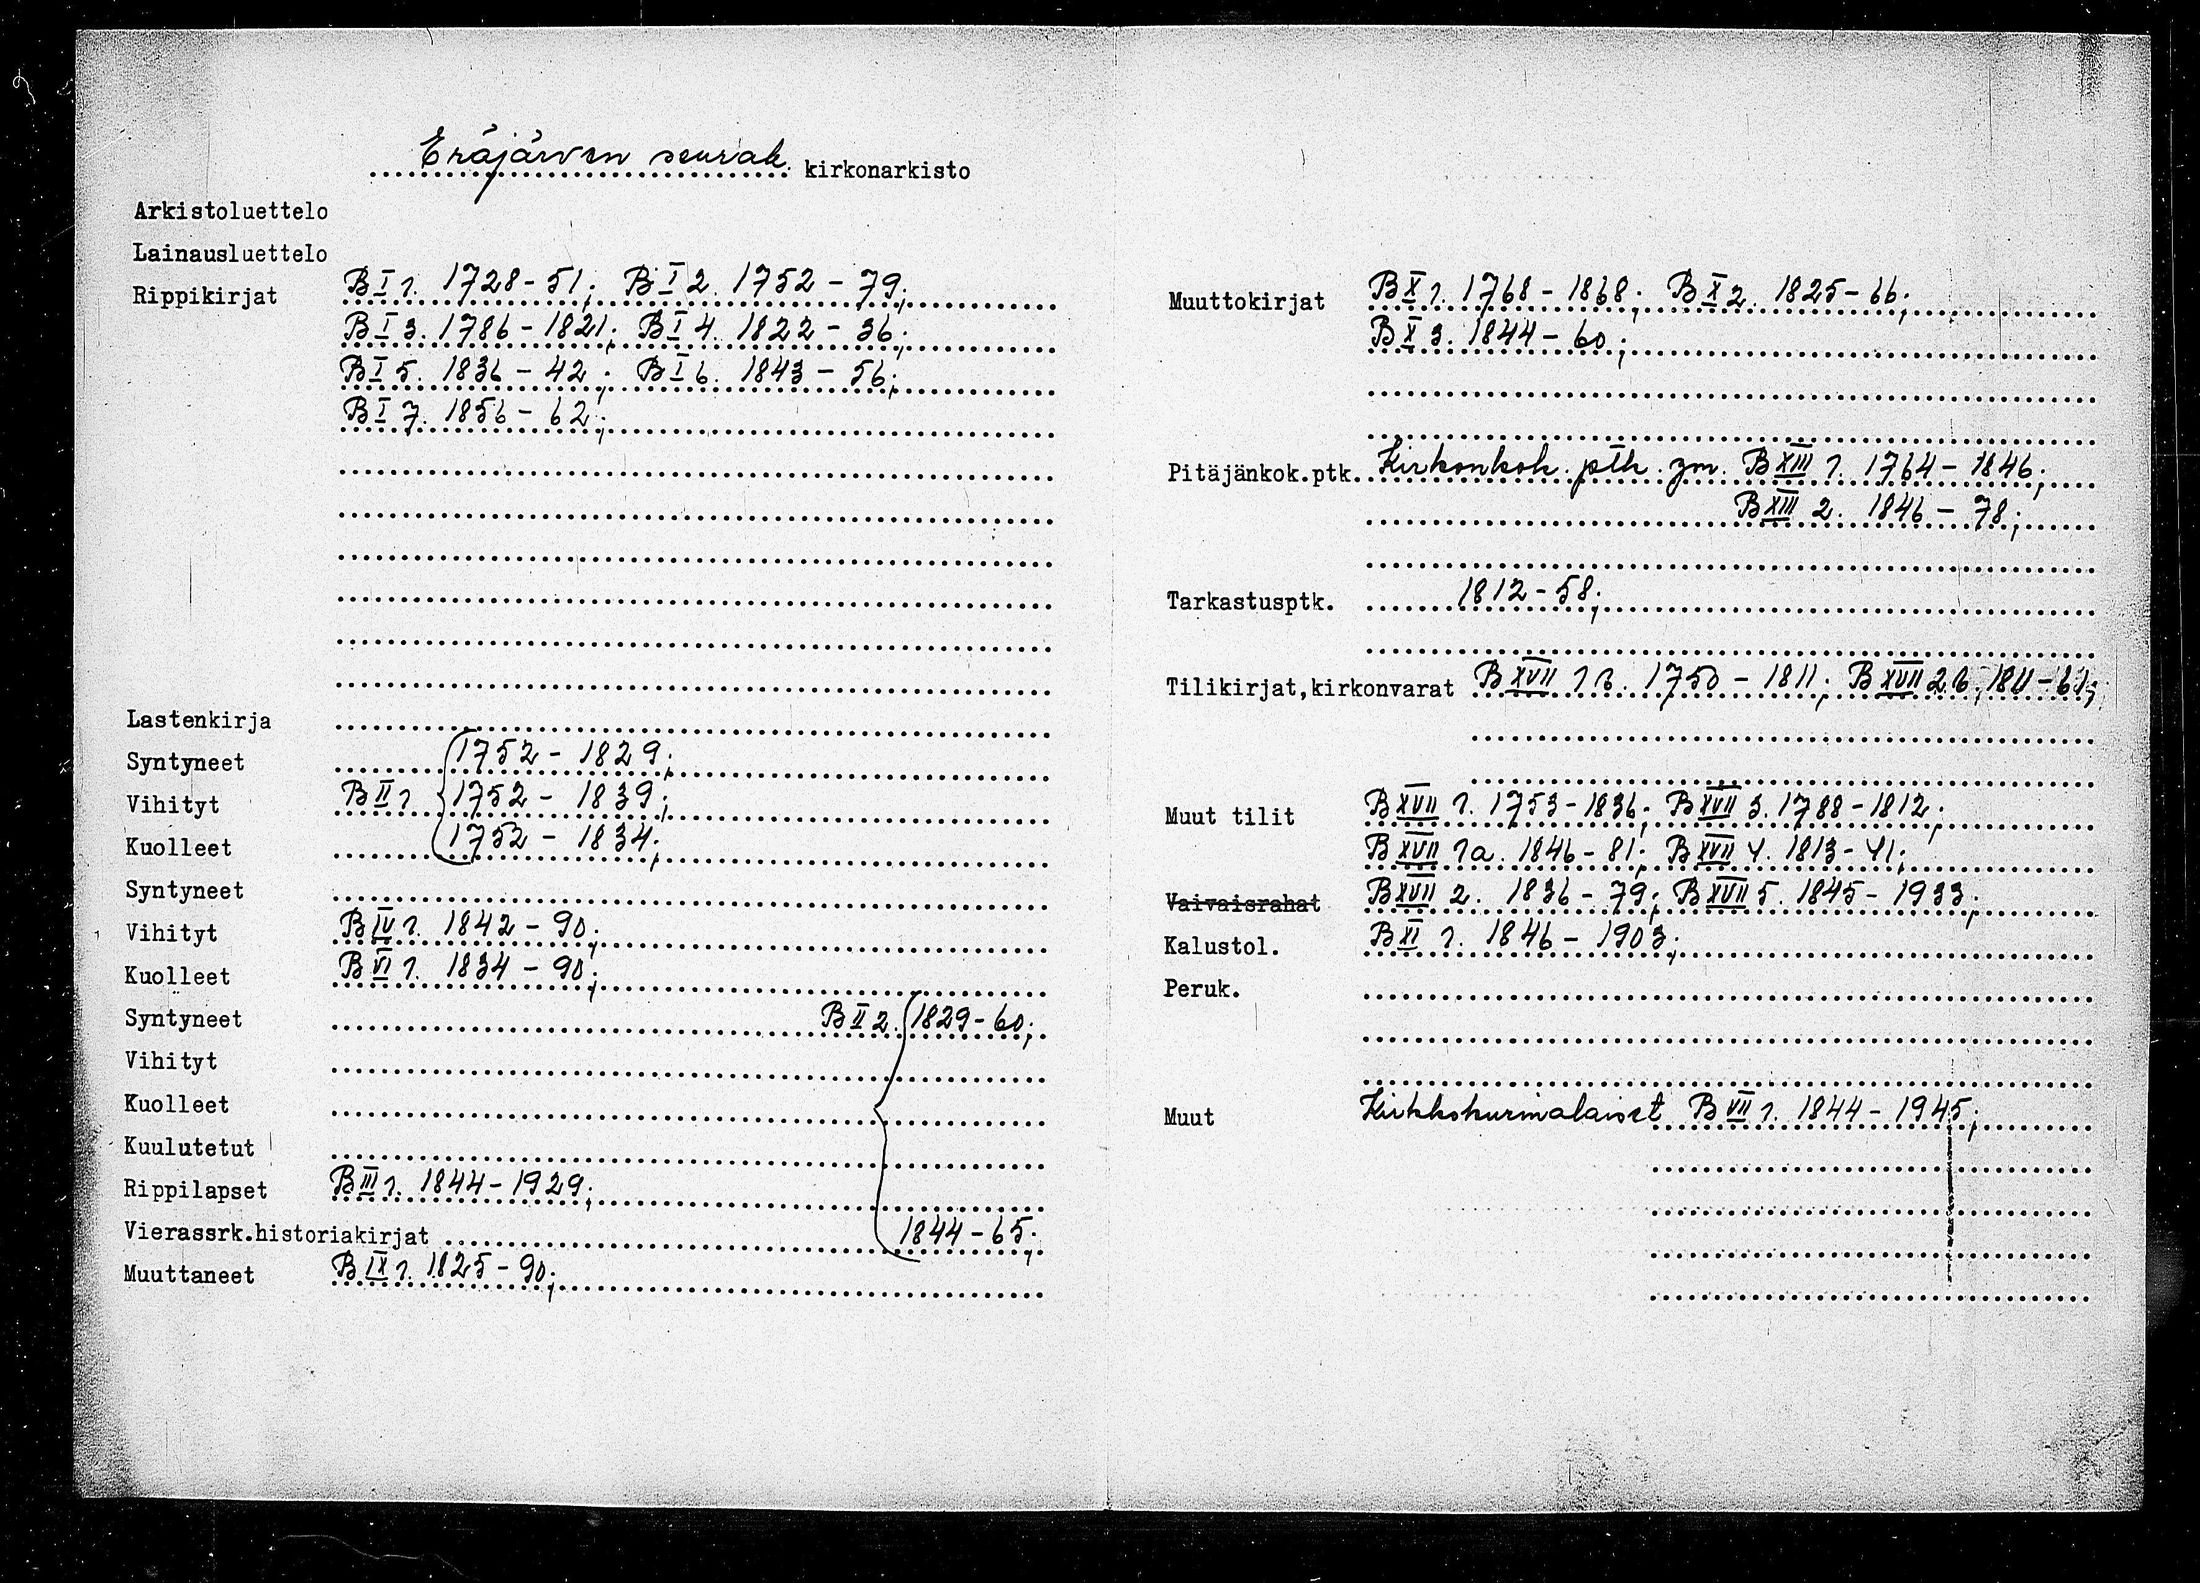 Eräjärven seurak. kirkonarkisto
Arkistoluettelo
Lainausluettelo
Rippikirjat B I 1. 1728-51; B I 2. 1752-79;
B I 3. 1786-1821; B I 4. 1822-36;
B I 5. 1836-42; B I 6. 1843-56;
B I 7. 1856-62;
Lastenkirja
Syntyneet 1752-1829;
Vihityt B II 1 1752-1839;
Kuolleet 1752-1834;
Syntyneet
Vihityt B IV 1. 1842-90;
Kuolleet B VI 1. 1834-90;
Syntyneet B II 2. 1829-60;
Vihityt
Kuolleet
Kuulutetut
Rippilapset B III 1. 1844-1929;
Vierassrk.historiakirjat 1844-65;
Muuttaneet B IX 1. 1825-90;
Muuttokirjat B X 1. 1768-1868; B X 2. 1825-66;
B X 3. 1844-60;
Pitäjänkok.ptk. Kirkonkok. ptk. ym. B XIII 1. 1764-1846;
B XIII 2. 1846-78;
Tarkastusptk. 1812-58;
Tilikirjat,kirkonvarat B XVII 1 b. 1750-1811; B XVII 2 b. 1811-61;
Muut tilit B XVII 1. 1753-1836; B XVII 3. 1788-1812;
B XVII 1a. 1846-81; B XVII 4. 1813-41;
Vaivaisrahat B XVII 2. 1836-79; B XVII 5. 1845-1933;
Kalustol. B XI 1. 1846-1903;
Peruk.
Muut Kirkkokurinalaiset B VII 1. 1844-1945;